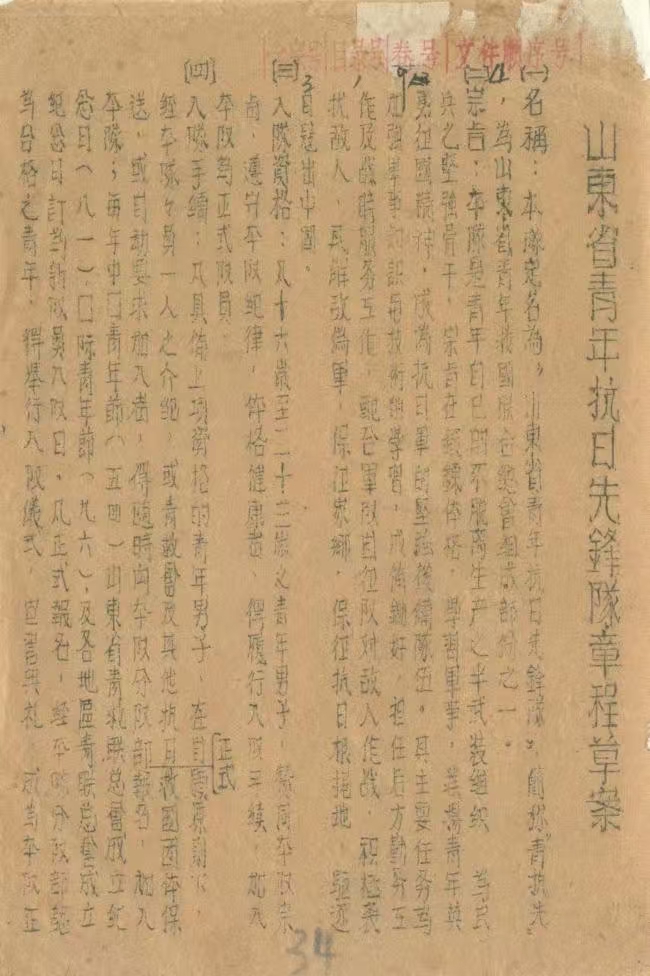 山東省青年抗日先鋒隊章程草案
(一)名稱：本隊定名為"山東省青年抗日先鋒隊"，簡称"青抗先"
，為山東省青年救國联合總會組成部份之一。
(二)宗旨：本隊是青年自己的不脱离生产之半武装組织 為民
兵之堅強骨干，宗旨在鍛鍊体格，學習軍事，發揚青年英
勇衛國精神，成為抗日軍的堅強後備隊伍。其主要任务為
加強軍事知識与技術的學習，成俏鋤奸，担任后方勤务工
作及战時服务工作，配合軍队自衛队对敌人作战，积極袭
扰敌人，瓦解敌偽軍，保衛家鄉，保衛抗日根据地，驅逐
日寇出中国。
(三)入隊資格：凡十六歲至二十三歲之青年男子，贊同本队宗
旨，遵守本队紀律，体格健康者，得履行入隊手續，加入
本队為正式队員。
(四)入隊手續：凡具備上項資格的青年男子，在自願原則下，
正式
經本隊々員一人之介紹，或青救會及其他抗日救國团体保
送，或自動要求加入者，得隨時向本队分队部報名，加入
本隊；每年中国青年節(五四)山東省青救联总會成立紀
念日(八一)，国际青年節(九六)，及各地區青联总會成立
紀念日訂為新队員入队日，凡正式報名，經本隊分队部認
為合格之青年，得舉行入队儀式，宣誓典礼，成為本隊正
34